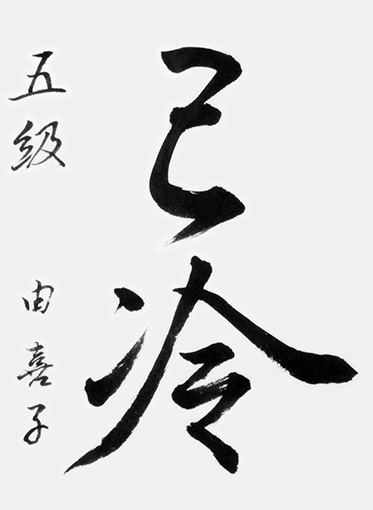 已冷
五級 由喜子